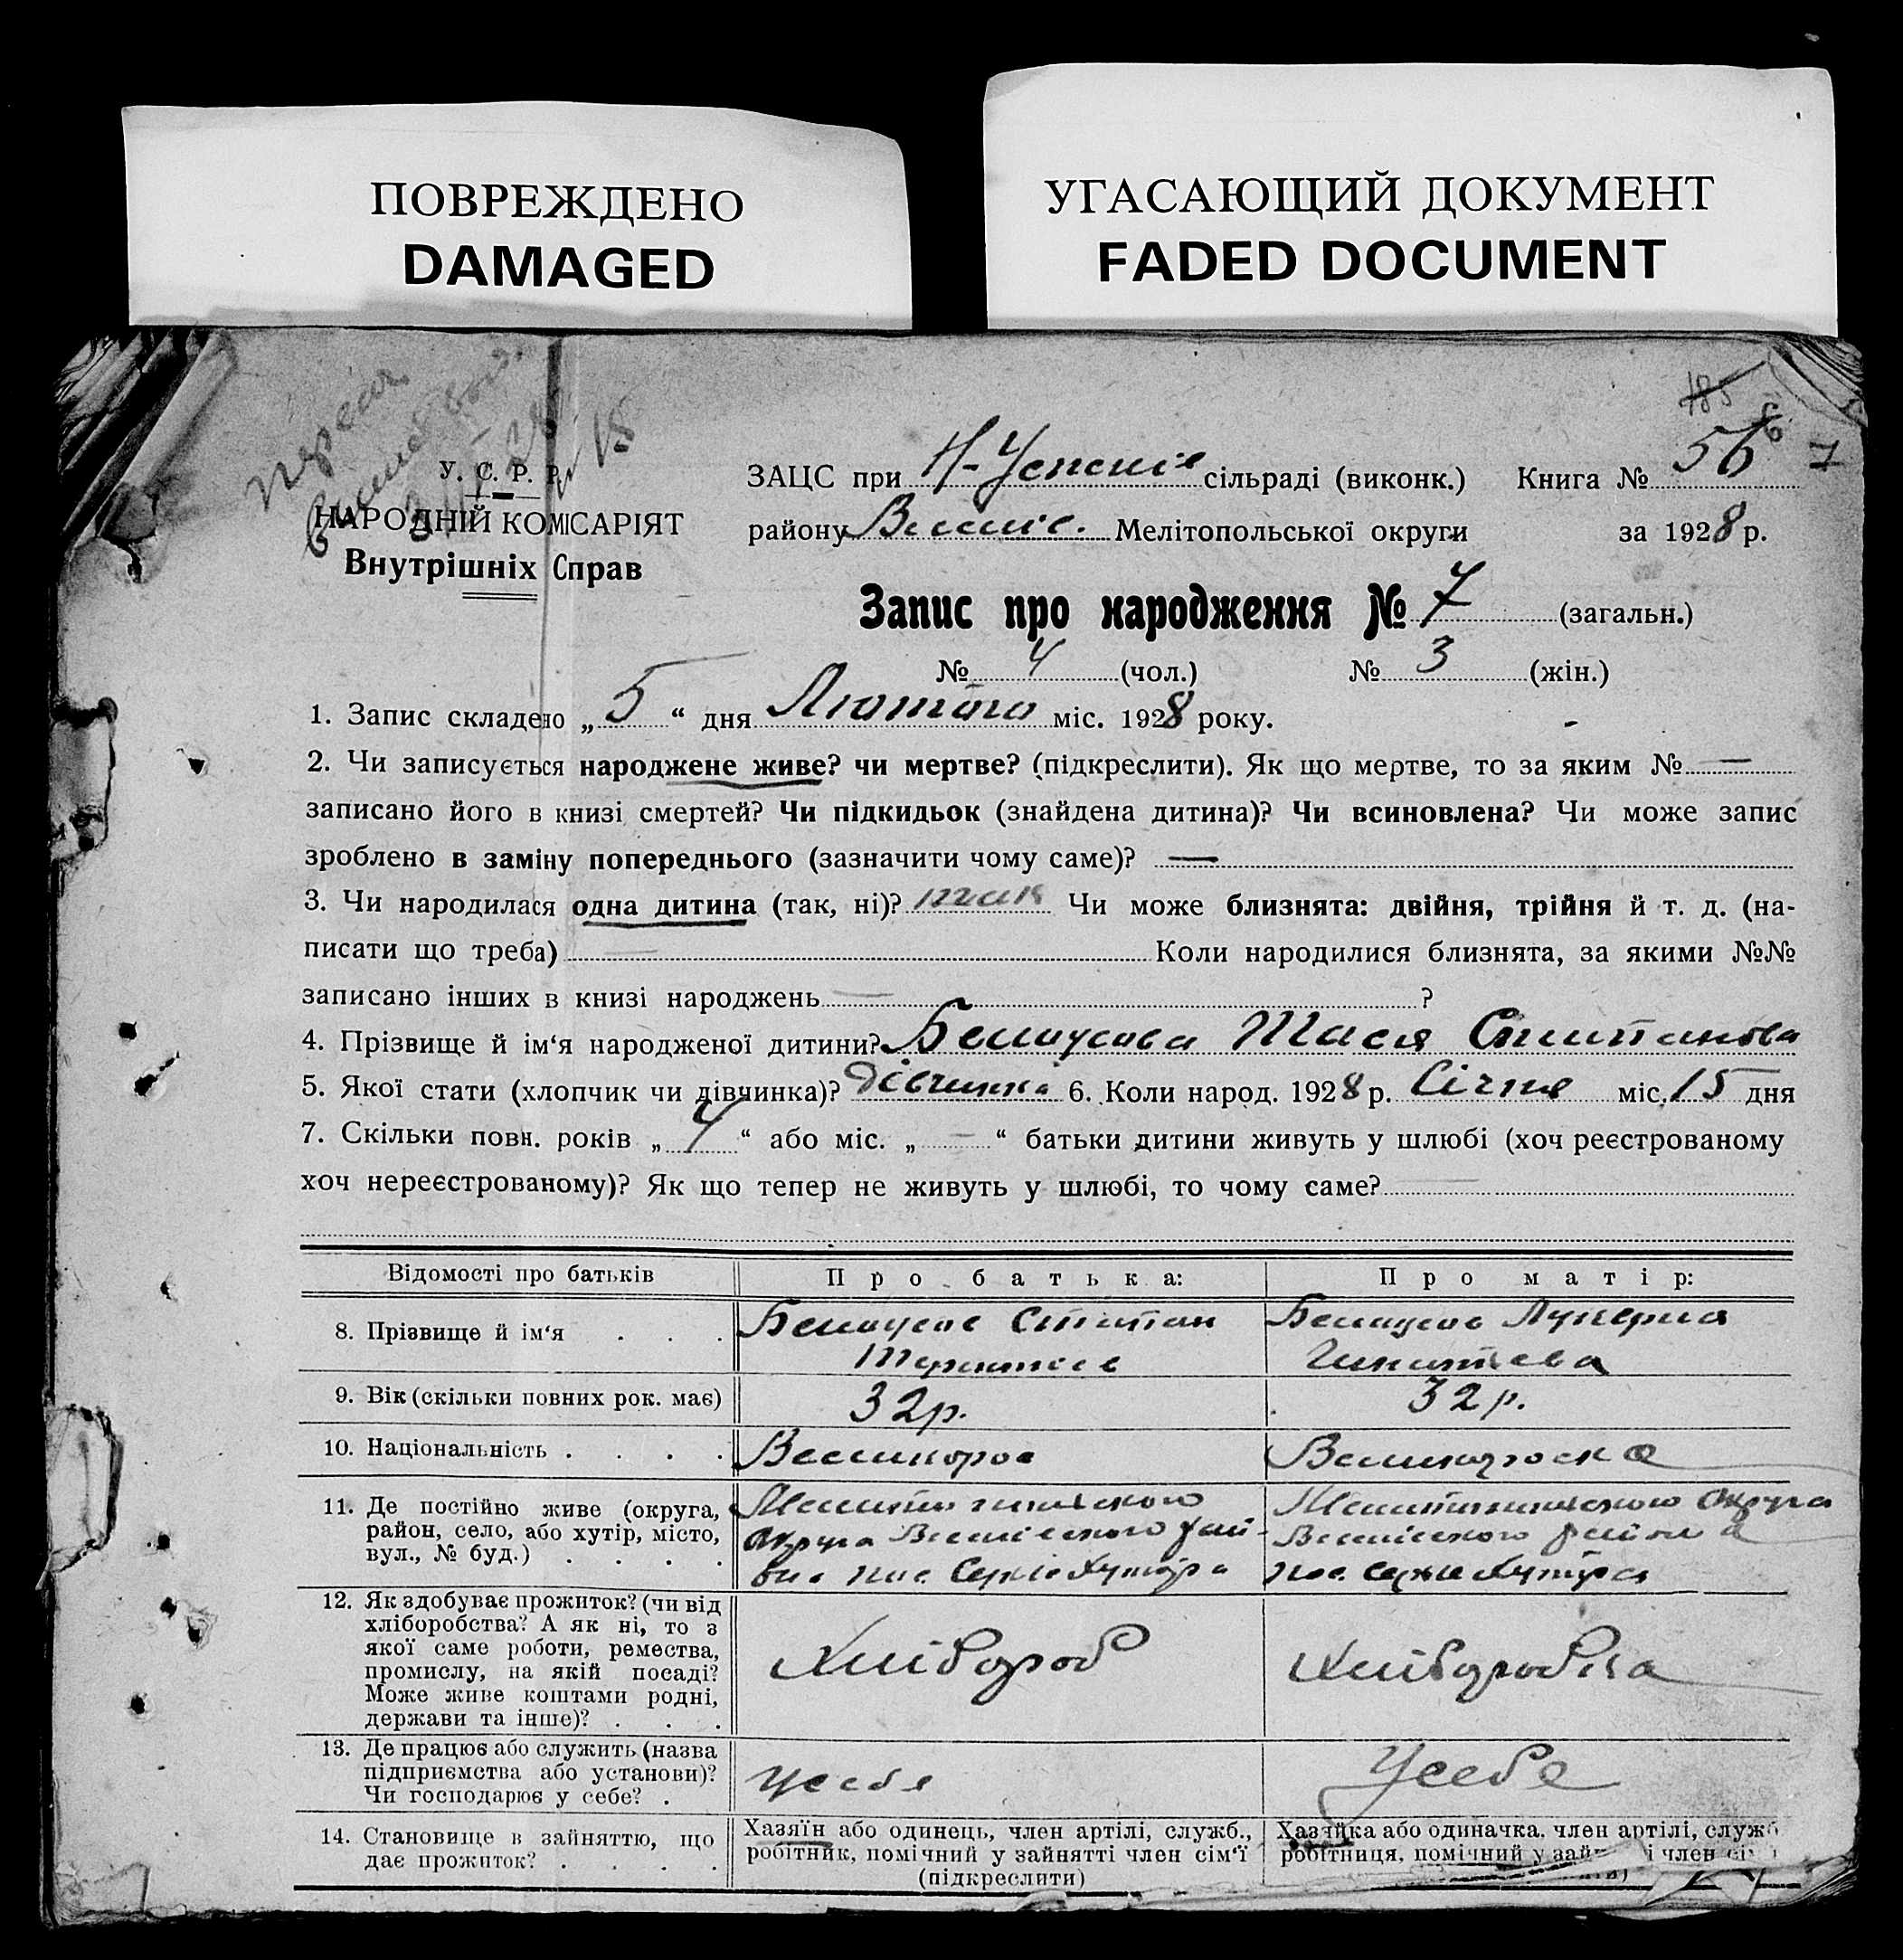 ПОВРЕЖДЕНО
DAMAGED
УГАСАЮЩИЙ ДОКУМЕНТ
FADED DOCUMENT
185
У. С. Р. Р.
НАРОДНІЙ КОМІСАРІЯТ
Внутрішніх Справ
ЗАЦС при Н-Успені сільраді (виконк.) Книга № 56
району Мелітопольської округи за 1928 р.
Запис про народження № 7 (загальн.)
№ 4 (чол.) № 3 (жін.)
1. Запис складено „5“ дня Лютого міс. 1928 року.
2. Чи записується народжене живе? чи мертве? (підкреслити). Як що мертве, то за яким № —
записано його в книзі смертей? Чи підкидьок (знайдена дитина)? Чи всиновлена? Чи може запис
зроблено в заміну попереднього (зазначити чому саме)? —
3. Чи народилася одна дитина (так, ні)? так Чи може близнята: двійня, трійня й т. д. (на-
писати що треба) — Коли народилися близнята, за якими №№
записано інших в книзі народжень — ?
4. Прізвище й ім‘я народженої дитини? Белоусова Тася
5. Якої стати (хлопчик чи дівчинка)? дівчинка 6. Коли народ. 1928 р. Січня міс. 15 дня
7. Скільки повн. років „4“ або міс. „—“ батьки дитини живуть у шлюбі (хоч реєстрованому
хоч нереєстрованому)? Як що тепер не живуть у шлюбі, то чому саме? —
Відомості про батьків
Про батька:
Про матір:
8. Прізвище й ім‘я . . .
Белоусов Степан
Терентієв
Белоусова Лукерия
Игнатієва
9. Вік (скільки повних рок. має)
32 р.
32 р.
10. Національність . . . .
Великорос
Великороска
11. Де постійно живе (округа,
район, село, або хутір, місто,
вул., № буд.) . . . .
Мелитопільского
округа Веселівского рай-
она пос.
Мелитопільского округа
Веселівского района
пос.
12. Як здобуває прожиток? (чи від
хліборобства? А як ні, то з
якої саме роботи, ремества,
промислу, на якій посаді?
Може живе коштами родні,
держави та інше)? . . .
Хлібороб
Хліборобка
13. Де працює або служить (назва
підприємства або установи)?
Чи господарює у себе? .
У себе
У себе
14. Становище в зайняттю, що
дає прожиток? . . . .
Хазяїн або одинець, член артілі, служб.,
робітник, помічний у зайнятті член сім‘ї
(підкреслити)
Хазяйка або одиначка, член артілі, служб
робітниця, помічний у член